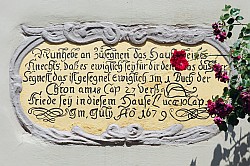 Nun hebe an Zusegnen das Hauß deines
Knechts, daß es ewiglich sey für dir, den was du
Segnest das ist gesegnet ewiglich im 1 Buch der
Chron am 18 Cap 27 Verß
Friede sey in diesem Hause Lucæ 10 Cap.
Im July Aō 1679